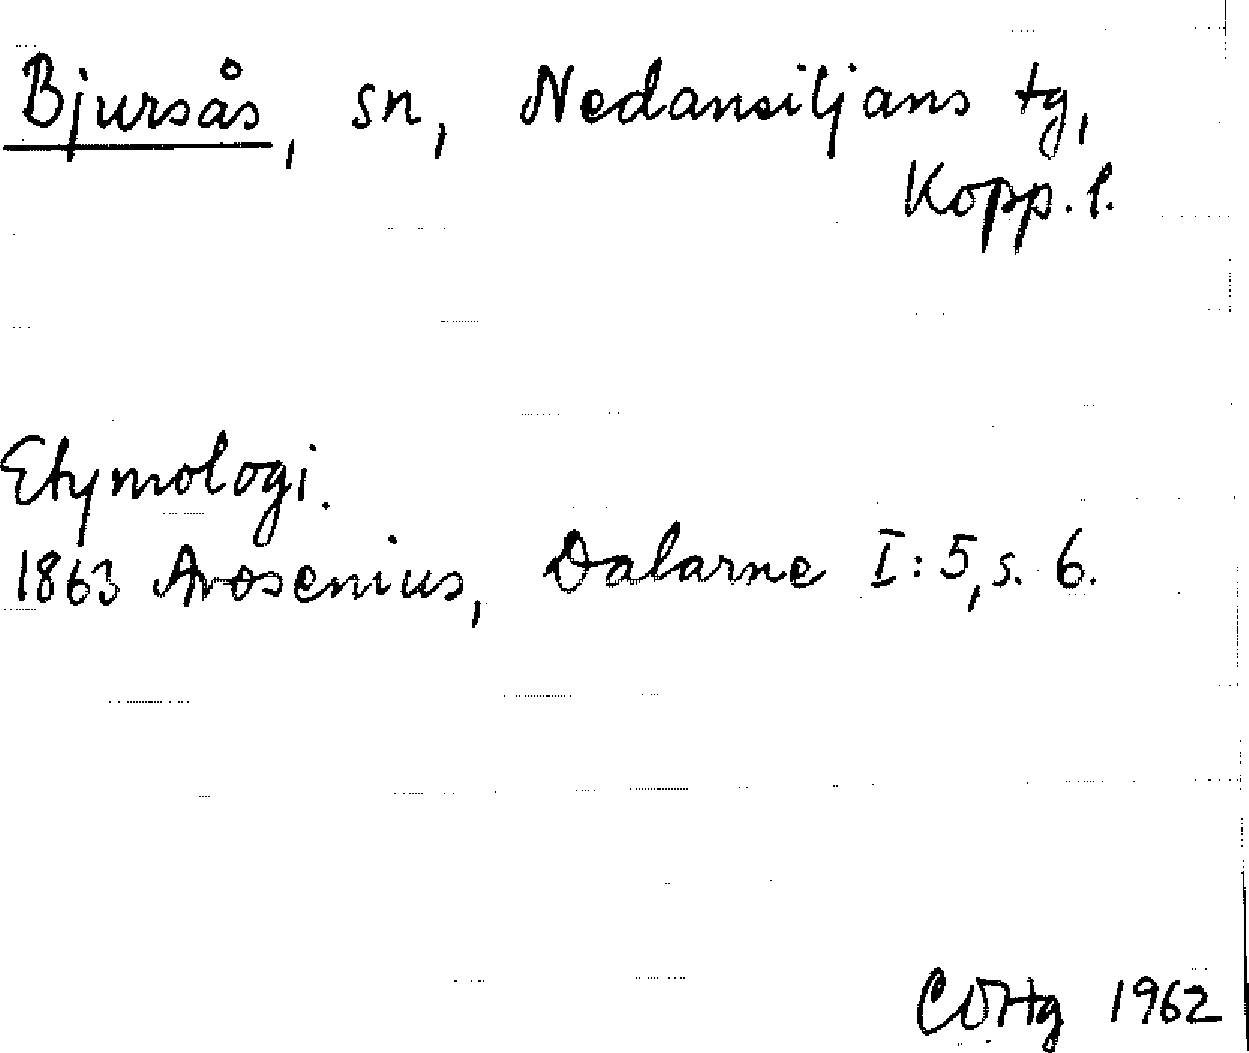 Bjursås, sn, Nedansiljans tg,
Kopp. l.
Etymologi.
1863 Arosenius, Dalarne I:5, s. 6.
1962